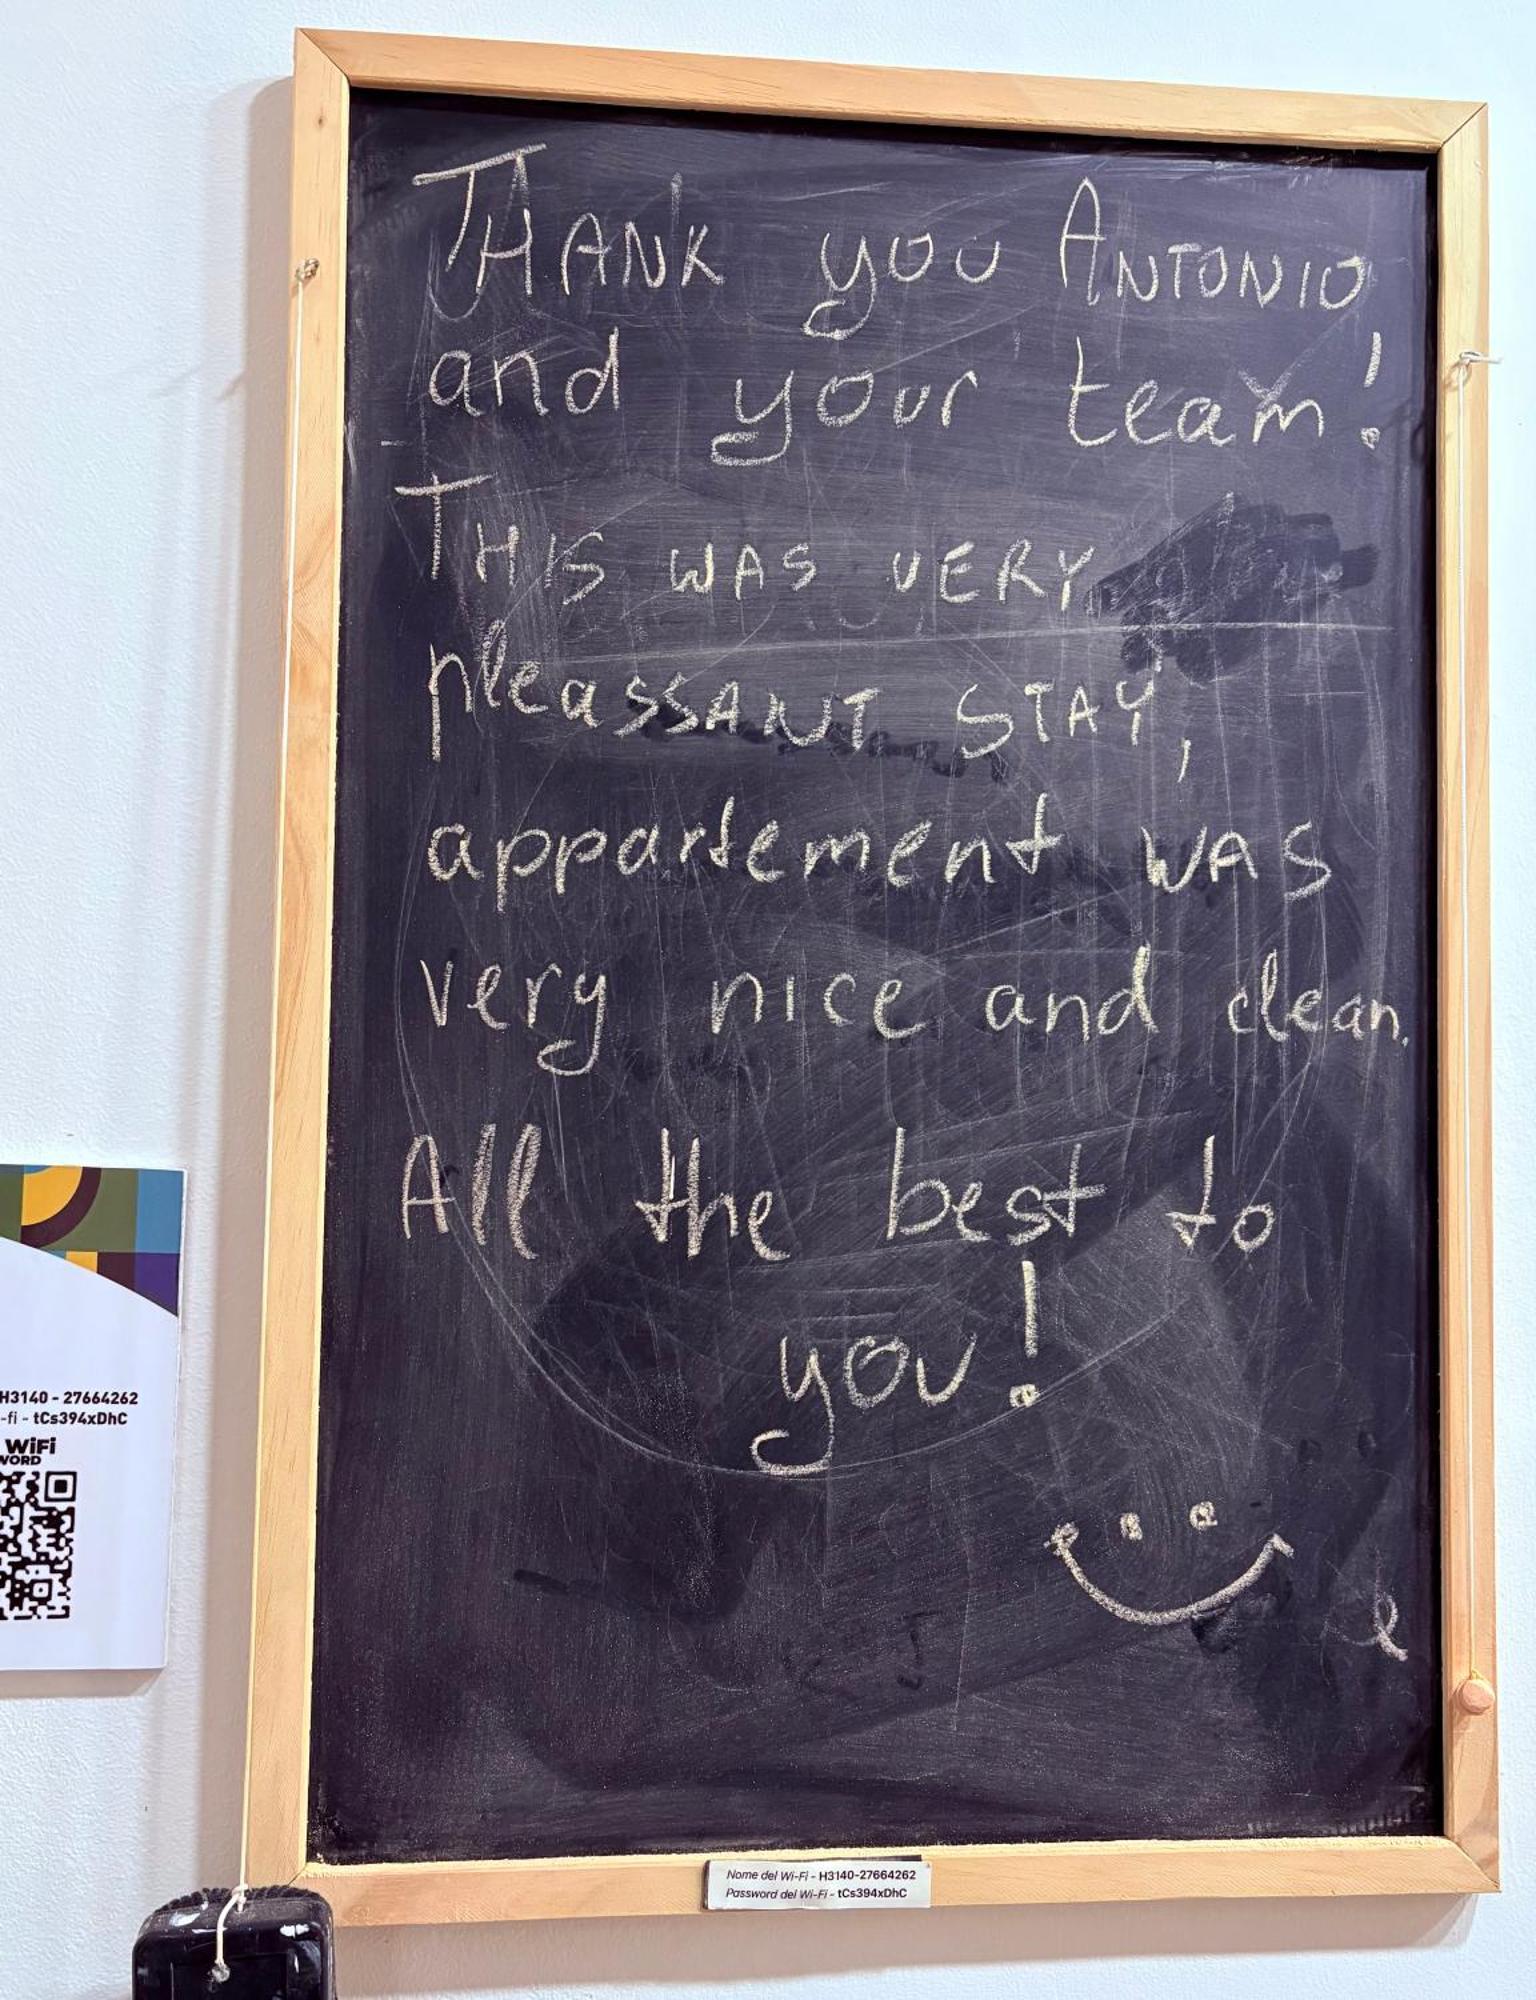 THANK you ANTONIO
and your team!
THIS WAS VERY
pleaSSANT STAY,
appartement WAS
very nice and clean.
All the best to
you!
H3140 - 27664262
-fi - tCs394xDhC
WiFi
WORD
Nome del Wi-Fi - H3140-27664262
Password del Wi-Fi - tCs394xDhC